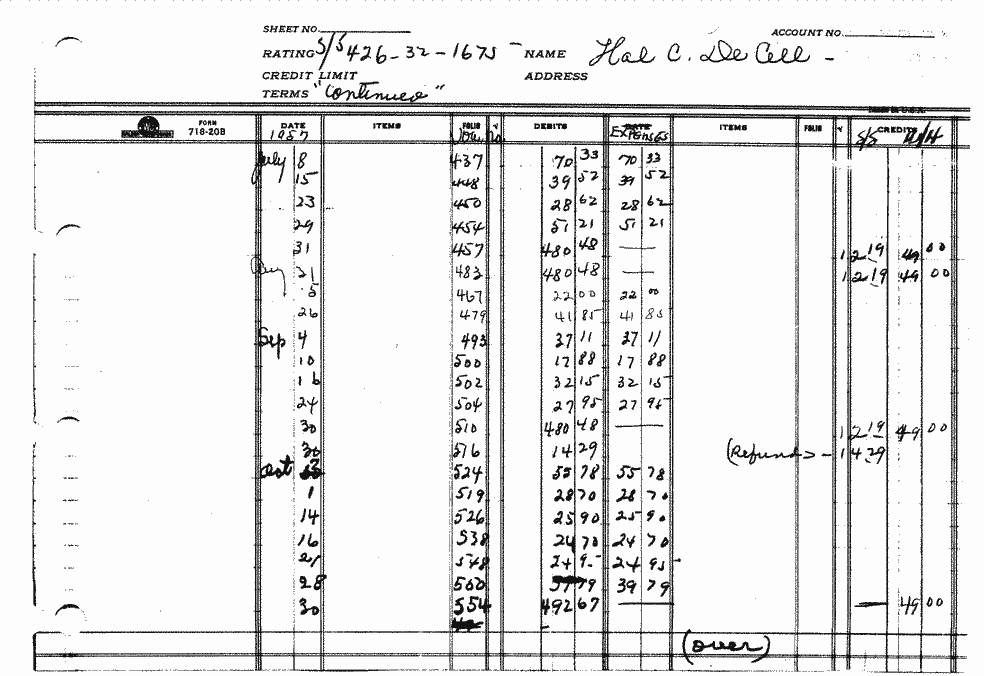 SHEET NO. ACCOUNT NO.
RATING S/S 426-32-1675 - NAME Hal C. DeCell -
CREDIT LIMIT ADDRESS
TERMS "Continued"
MADE IN U.S.A.
FORM 718-20B DATE 1957 ITEMS FOLIO Vou. No. √ DEBITS DATE EXPENSES ITEMS FOLIO √ CREDITS S/S W/H
July 8 437 70 33 70 33
15 448 39 52 39 52
23 450 28 62 28 62
29 454 51 21 51 21
31 457 480 48 — 12 19 49 00
Aug 21 483 480 48 — 12 19 49 00
5 467 22 00 22 00
26 479 41 85 41 85
Sep 4 493 37 11 37 11
10 500 17 88 17 88
16 502 32 15 32 15
24 504 27 95 27 95
30 510 480 48 — 12 19 49 00
30 516 14 29 (Refund) - 14 29
Oct 524 55 78 55 78
1 519 28 70 28 70
14 526 25 90 25 90
16 538 24 70 24 70
548 24 95 24 95
28 560 39 79
30 554 492 67 — — 49 00
(over)